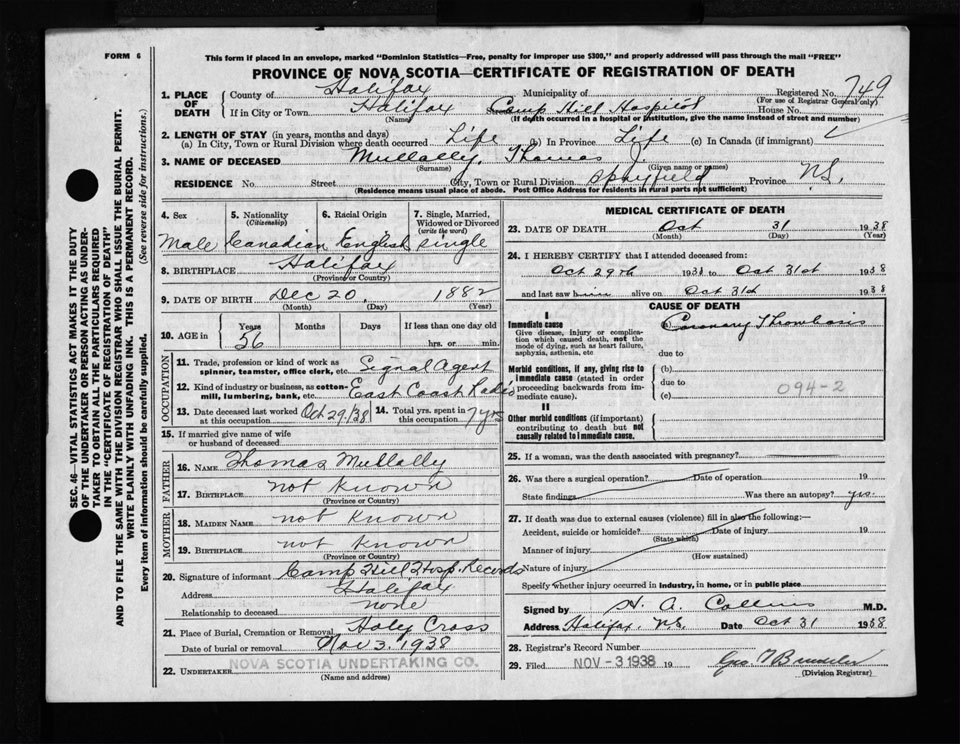 FORM 6
This form if placed in an envelope, marked "Dominion Statistics—Free, penalty for improper use $300," and properly addressed will pass through the mail "FREE"
PROVINCE OF NOVA SCOTIA—CERTIFICATE OF REGISTRATION OF DEATH
SEC. 46—VITAL STATISTICS ACT MAKES IT THE DUTY
OF THE UNDERTAKER OR PERSON ACTING AS UNDER-
TAKER TO OBTAIN ALL THE PARTICULARS REQUIRED
IN THE "CERTIFICATE OF REGISTRATION OF DEATH"
AND TO FILE THE SAME WITH THE DIVISION REGISTRAR WHO SHALL ISSUE THE BURIAL PERMIT.
WRITE PLAINLY WITH UNFADING INK. THIS IS A PERMANENT RECORD.
Every item of information should be carefully supplied. (See reverse side for instructions.)
1. PLACE OF DEATH
County of Halifax Municipality of Registered No. 749
(For use of Registrar General only)
If in City or Town Halifax Street Camp Hill Hospital House No.
(Name) (If death occurred in a hospital or institution, give the name instead of street and number)
2. LENGTH OF STAY (in years, months and days)
(a) In City, Town or Rural Division where death occurred Life (b) In Province Life (c) In Canada (if immigrant)
3. NAME OF DECEASED Mullally, Thomas J.
(Surname) (Given name or names)
RESIDENCE No. Street City, Town or Rural Division Spryfield Province N.S.
(Residence means usual place of abode. Post Office Address for residents in rural parts not sufficient)
4. Sex 5. Nationality (Citizenship) 6. Racial Origin 7. Single, Married, Widowed or Divorced (write the word)
Male Canadian English Single
8. BIRTHPLACE Halifax
(Province or Country)
9. DATE OF BIRTH Dec 20, 1882
(Month) (Day) (Year)
10. AGE in Years Months Days If less than one day old
56 hrs. or min.
OCCUPATION
11. Trade, profession or kind of work as spinner, teamster, office clerk, etc. Signal Agent
12. Kind of industry or business, as cotton-mill, lumbering, bank, etc. East Coast Radio
13. Date deceased last worked at this occupation Oct 29/38 14. Total yrs. spent in this occupation 7 yrs
15. If married give name of wife or husband of deceased
FATHER
16. NAME Thomas Mullally
17. BIRTHPLACE not known
(Province or Country)
MOTHER
18. MAIDEN NAME not known
19. BIRTHPLACE not known
(Province or Country)
20. Signature of informant Camp Hill Hosp. Records
Address Halifax
Relationship to deceased none
21. Place of Burial, Cremation or Removal Holy Cross
Date of burial or removal Nov 3, 1938
22. UNDERTAKER NOVA SCOTIA UNDERTAKING CO.
(Name and address)
MEDICAL CERTIFICATE OF DEATH
23. DATE OF DEATH Oct 31 1938
(Month) (Day) (Year)
24. I HEREBY CERTIFY that I attended deceased from:
Oct 29th 1938 to Oct 31st 1938
and last saw him alive on Oct 31st 1938
CAUSE OF DEATH
I
Immediate cause (a) Coronary Thrombosis
Give disease, injury or complication which caused death, not the mode of dying, such as heart failure, asphyxia, asthenia, etc
due to
Morbid conditions, if any, giving rise to immediate cause (stated in order proceeding backwards from immediate cause). (b)
due to 094-2
(c)
II
Other morbid conditions (if important) contributing to death but not causally related to immediate cause.
25. If a woman, was the death associated with pregnancy?
26. Was there a surgical operation? Date of operation 19
State findings Was there an autopsy? yes.
27. If death was due to external causes (violence) fill in also the following:—
Accident, suicide or homicide? Date of injury 19
(State which)
Manner of injury
(How sustained)
Nature of injury
Specify whether injury occurred in industry, in home, or in public place
Signed by H. A. Collins M.D.
Address Halifax, N.S. Date Oct 31 1938
28. Registrar's Record Number
29. Filed NOV - 3 1938 19
(Division Registrar)